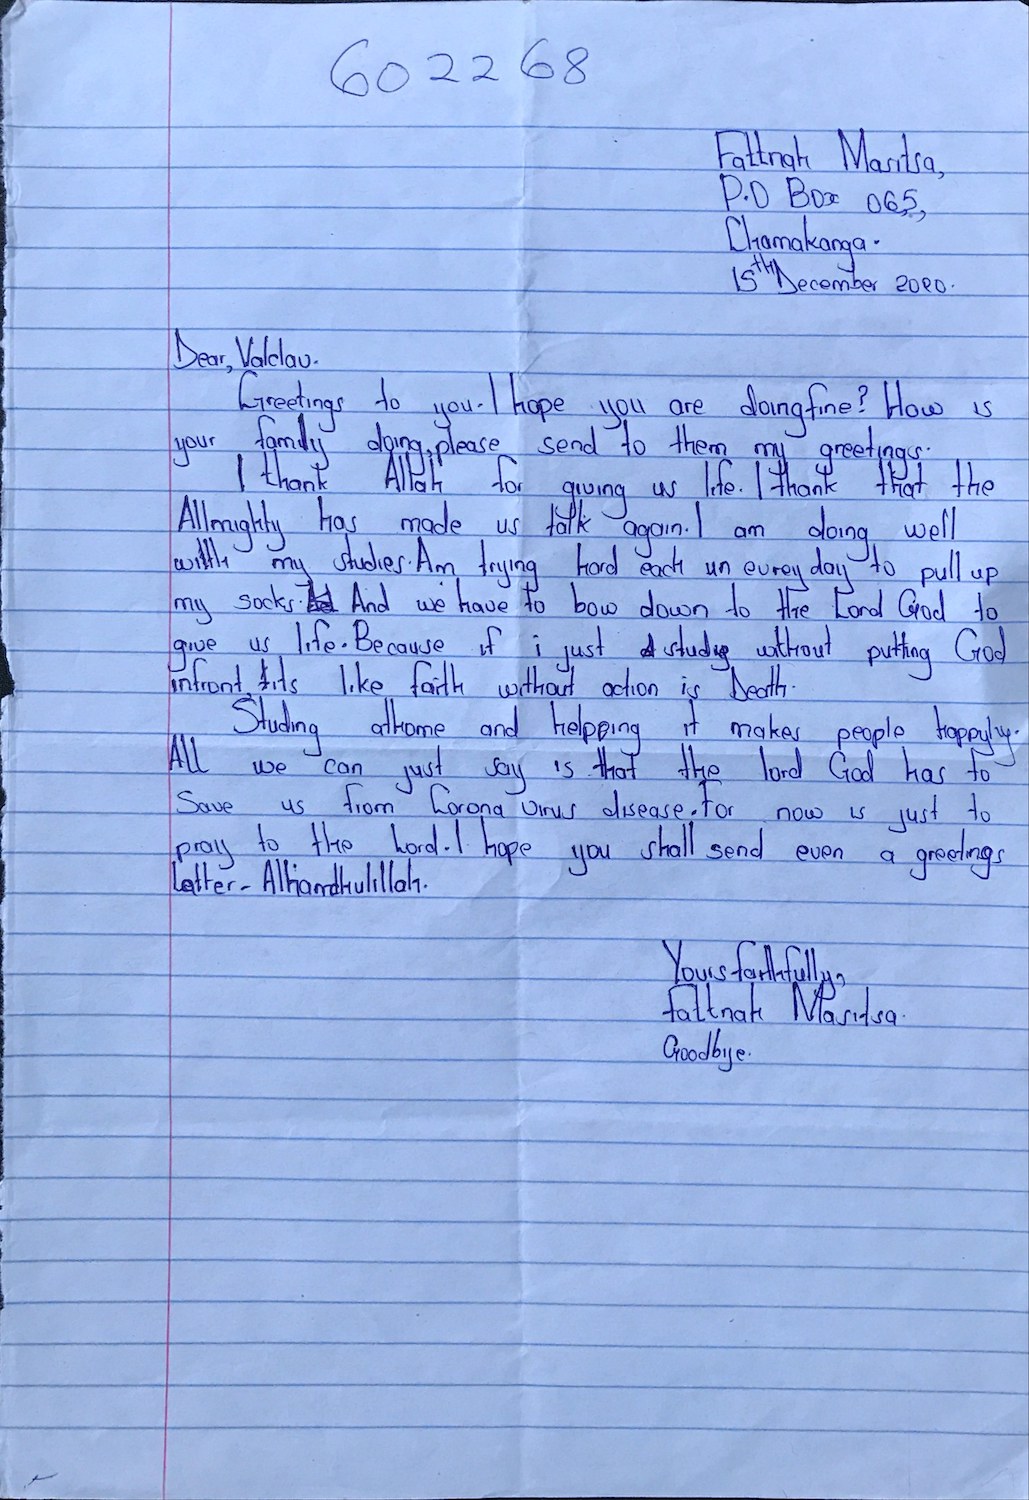 602268
Fattnah Masitsa,
P.O Box 065,
Chamakanga.
15th December 2020.
Dear, Valclav.
Greetings to you. I hope you are doing fine? How is
your family doing, please send to them my greetings.
I thank Allah for giving us life. I thank that the
Allmighty has made us talk again. I am doing well
with my studies. Am trying hard each un evrey day to pull up
my socks. And we have to bow down to the Lord God to
give us life. Because if i just studie without putting God
infront, its like faith without action is Death.
Studing athome and helpping it makes people happyly.
All we can just say is that the lord God has to
Save us from Corona virus disease. For now is just to
pray to the Lord. I hope you shall send even a greetings
Letter - Alhandhulillah.
Yours faithfully,
Fattnah Masitsa.
Goodbye.